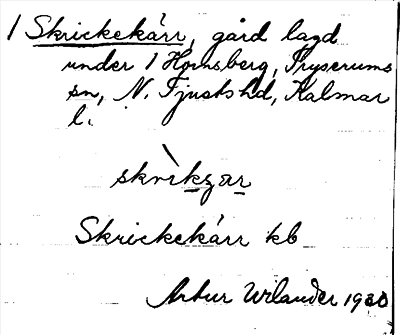 1 Skrickekärr, gård lagd
under 1 Hornsberg, Tryserums
sn, N. Tjustshd, Kalmar
l.
skrìkʒar
Skrickekärr kb
Artur Wilander 1930